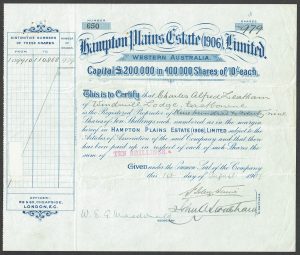 NUMBER
650
SHARES
979
DISTINCTIVE NUMBERS
OF THESE SHARES
Hampton Plains Estate (1906), Limited.
WESTERN AUSTRALIA.
Capital £200,000 in 400,000 Shares of 10/- each.
This is to Certify that Charles Alfred
Windmill Lodge, Eastbourne
is the Registered Proprietor of Nine hundred & seventy nine
Shares of Ten Shillings each numbered as in the margin
being in HAMPTON PLAINS ESTATE (1906) LIMITED, subject to the
Articles of Association of the said Company and that there
has been paid up in respect of each of such Shares the
sum of TEN SHILLINGS.
Given under the Common Seal of the Company
this day of 190
OFFICES:
CHEAPSIDE,
LONDON, E.C.